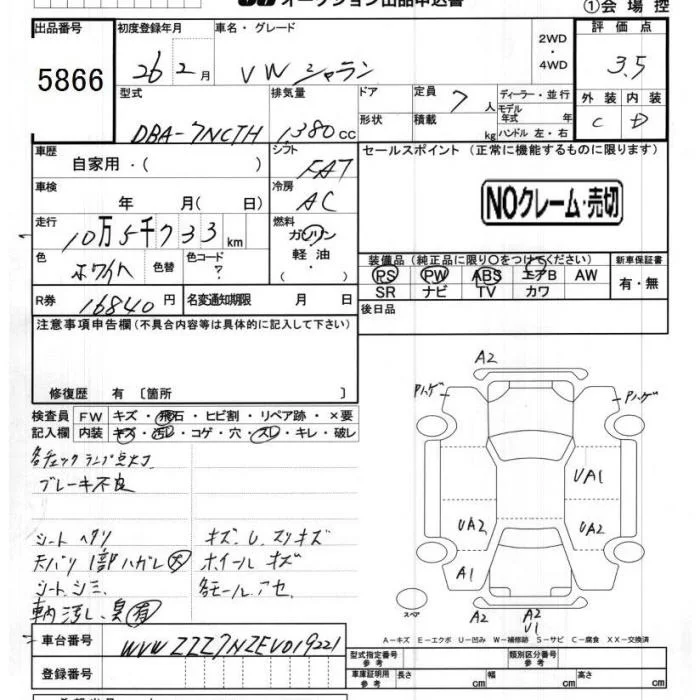 オークション出品申込書
①会場控
出品番号
5866
初度登録年月
26 2月
車名・グレード
VW シャラン
2WD・4WD
評価点
3.5
外装 内装
C D
型式
DBA-7NCTH
排気量
1380cc
ドア
形状
定員 7人
積載 kg
ディーラー・並行
モデル年式 年
ハンドル 左・右
車歴
自家用・( )
シフト
FA7
車検
年 月( 日)
冷房
AC
走行
10万5千733km
燃料
ガソリン・軽油・( )
色
ホワイト
色替
色コード
?
R券
16840円
名変通知期限 月 日
セールスポイント(正常に機能するものに限ります)
NOクレーム・売切
装備品(純正品に限り○をつけてください)
PS PW ABS エアB AW
SR ナビ TV カワ
新車保証書
有・無
後日品
注意事項申告欄(不具合内容等は具体的に記入して下さい)
修復歴 有〔箇所 〕
検査員記入欄
FW キズ・飛石・ヒビ割・リペア跡・×要
内装 キズ・汚レ・コゲ・穴・スレ・キレ・破レ
各チェックランプ点灯
ブレーキ不良
シートヘタリ
天バリ1部ハガレ大
シートシミ
車内汚レ、臭有
キズ、U、スリキズ
ホイールキズ
各モールアセ
A2
Pハゲ
Pハゲ
UA1
UA2
UA2
A1
A2
A2
U1
スペア
A-キズ E-エクボ U-凹み W-補修跡 S-サビ C-腐食 XX-交換済
車台番号
WVWZZZ7NZEV019221
登録番号
型式指定番号 参考
類別区分番号 参考
車庫証明用 参考
長さ cm
幅 cm
高さ cm